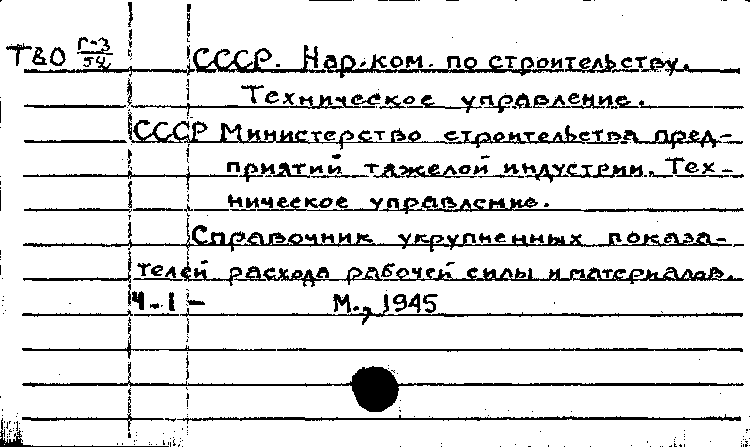 ТВО Г-3/54 СССР. Нар.ком. по строительству.
Техническое управление.
СССР Министерство строительства пред-
приятий тяжелой индустрии. Тех-
ническое управление.
Справочник укрупненных показа-
телей расхода рабочей силы и материалов.
Ч-1- М., 1945